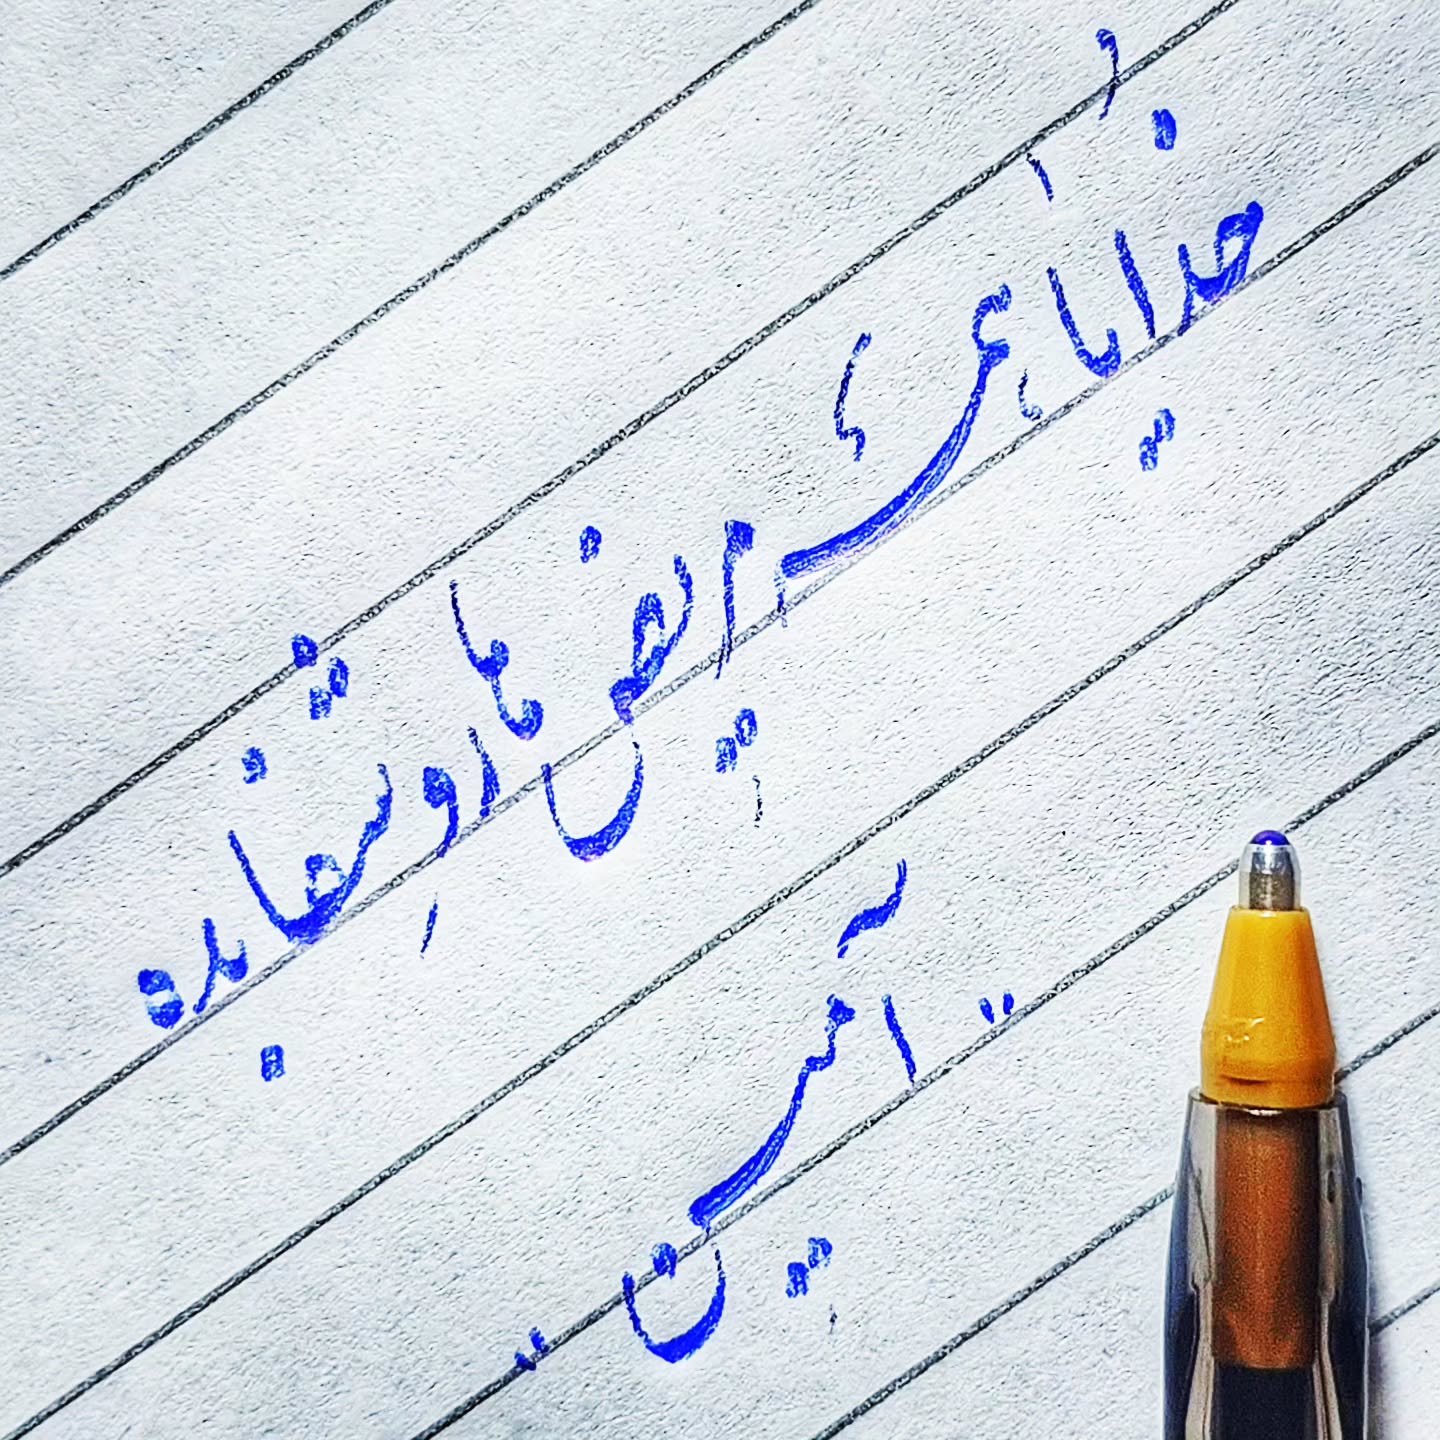 خُدایا همهٔ مریض ها رو شفا بده
"آمین"